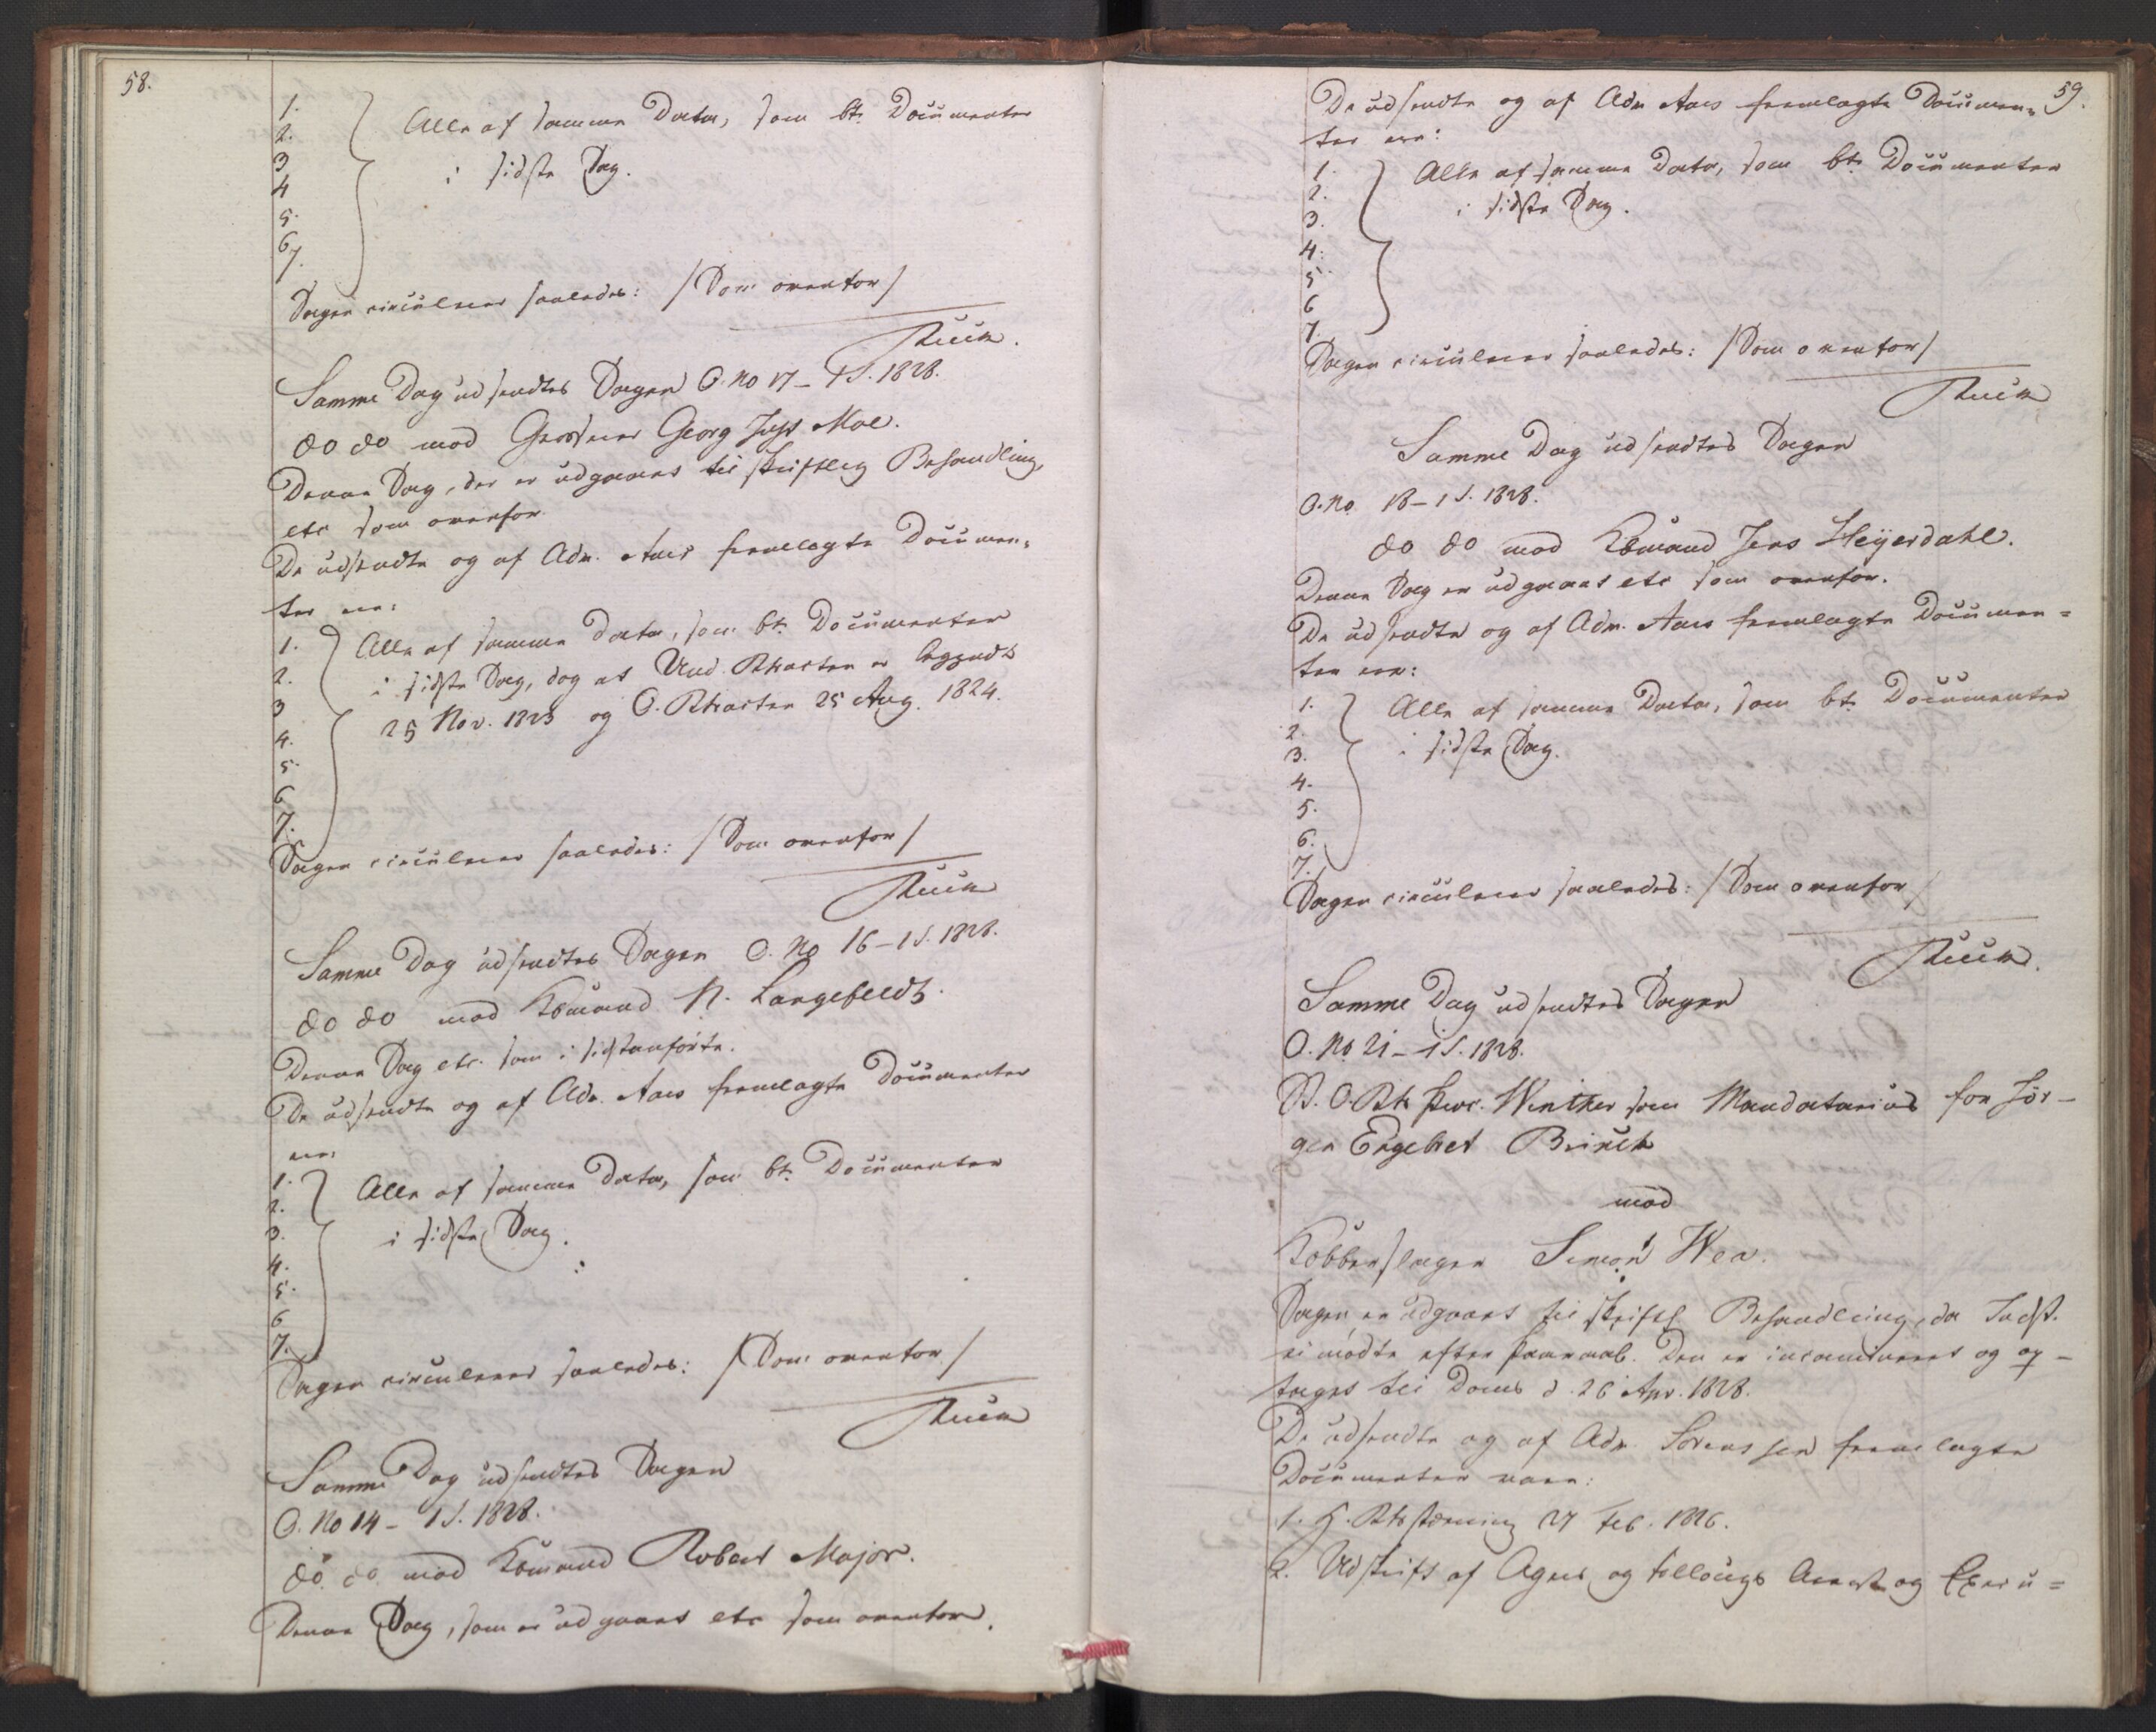 58.
1.
2.
3
4
5.
6
7.
Alle af samme Data, som bte Documenter
i sidste Sag.
Sagen circulerer saaledes: /Som ovenfor/
Samme Dag udsendtes Sagen O. No 17 - 1 S. 1828.
do do mod Georg Moe.
Denne Sag, der er udgaaet til skriftlig Behandling,
etc som ovenfor
De udsendte og af Adv. Aars fremlagte Documen-
ter ere:
1.
2.
3
4.
5.
6
7.
Alle af samme Data, som bte Documenter
i sidste Sag, dog at Und. Rtsacten er begyndt
25 Nov. 1823 og O. Rtsacten 25 Aug. 1824.
Sagen circulerer saaledes: /Som ovenfor/
Samme Dag udsendtes Sagen O. No 16 - 1 S. 1828.
do do mod Kbmand N. Langefeldt.
Denne Sag etc. som i sidstanførte.
De udsendte og af Adv. Aars fremlagte Documenter
ere:
1.
2.
3.
4.
5.
6
7.
Alle af samme Data, som bte Documenter
i sidste Sag.
Sagen circulerer saaledes: /Som ovenfor/
Samme Dag udsendtes Sagen
O. No 14 - 1 S. 1828.
do do mod Kbmand Robert Major.
Denne Sag, som er udgaaet etc som ovenfor.
59.
De udsendte og af Adv Aars fremlagte Documen-
ter ere:
1.
2.
3.
4.
5
6
7
Alle af samme Data, som bte Documenter
i sidste Sag.
Sagen circulerer saaledes: /Som ovenfor/
Samme Dag udsendtes Sagen
O. No 18 - 1 S. 1828.
do do mod Kbmand Jens Heyerdahl.
Denne Sag er udgaaet etc som ovenfor.
De udsendte og af Adv. Aars fremlagte Documen=
ter ere:
1.
2.
3.
4.
5.
6.
7.
Alle af samme Data, som bte Documenter
i sidste Sag.
Sagen circulerer saaledes: /Som ovenfor/
Samme Dag udsendtes Sagen
O. No 21 - 1 S. 1828.
O. Rts Proc. Winther som Mandatarius for Jör-
gen Engebret Brinch
mod
Kobberslager Simon Wea.
Sagen er udgaaet til skriftl. Behandling, da Indst.
ei mødte efter Paaraab. Den er incamineret og op-
tages til Doms d. 26 Apr. 1828.
De udsendte og af Adv. Sörenssen fremlagte
Documenter vare:
1. H. Rtsstævning 27 Feb. 1826.
2. Udskrift af Ageus og Follougs Arrest og Execu=